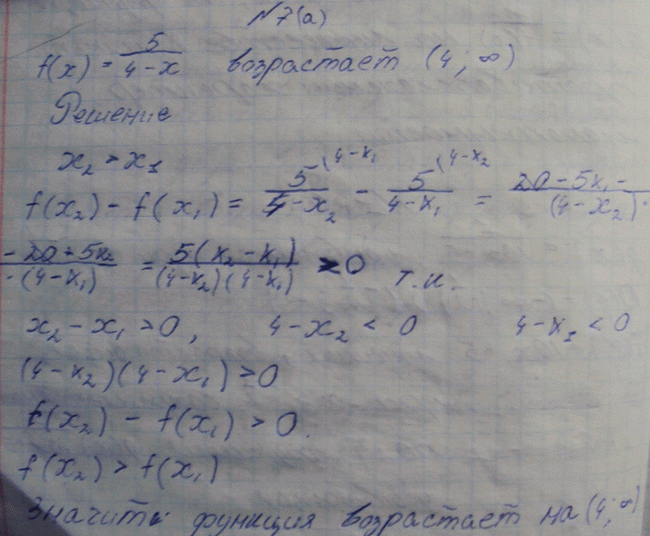 №7(а)
f(x) = 5/(4-x) возрастает (4; ∞)
Решение
x₂ > x₁
f(x₂) - f(x₁) = 5/(4-x₂) ⁽⁴⁻ˣ¹ - 5/(4-x₁) ⁽⁴⁻ˣ² = (20-5x₁-)/((4-x₂)·
(-20+5x₂)/(·(4-x₁)) = 5(x₂-x₁)/((4-x₂)(4-x₁)) > 0 т.к.
x₂ - x₁ > 0, 4-x₂ < 0 4-x₁ < 0
(4-x₂)(4-x₁) > 0
f(x₂) - f(x₁) > 0.
f(x₂) > f(x₁)
Значить функция возрастает на (4; ∞)